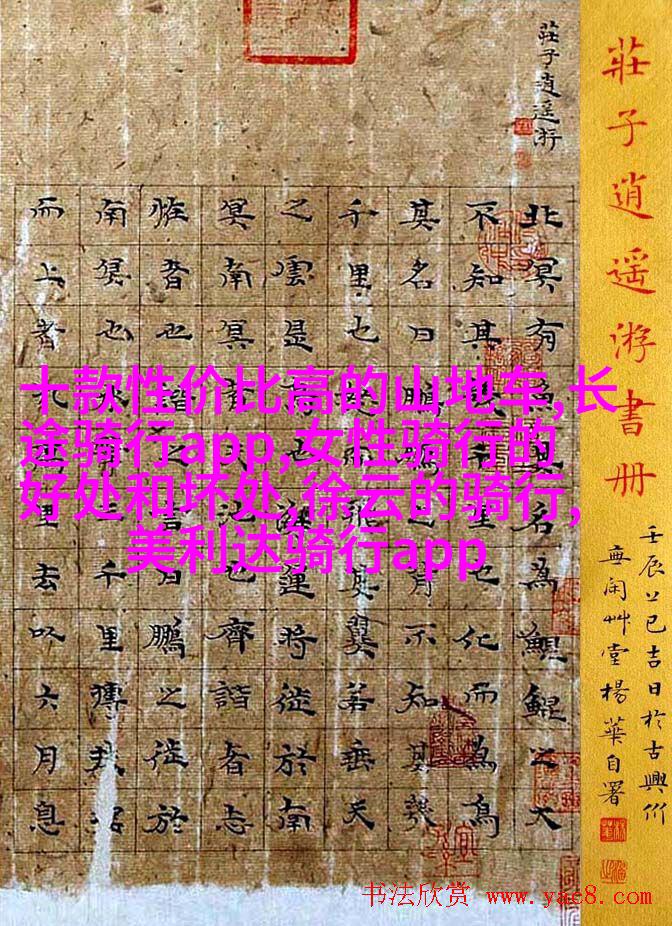 莊子逍遥游書册
壬辰上巳吉日於古興竹
無闲艸堂楊華自署
莊子逍遥游
北冥有魚其名為鯤鯤之大
不知其幾千里也化而為鳥
其名曰鵬鵬之背不知其幾
千里也怒而飛其翼若垂天
之雲是鳥也海運將徙於南
冥南冥者天池也齊諧者志
怪者也諧之言曰鵬之徙於
南冥也水擊三千里摶扶搖
而上者九萬里去以六月息
十款性价比高的山地车,长
途骑行app,女性骑行的
好处和坏处,徐云的骑行,
美利达骑行app
书法欣赏 www.yac8.com